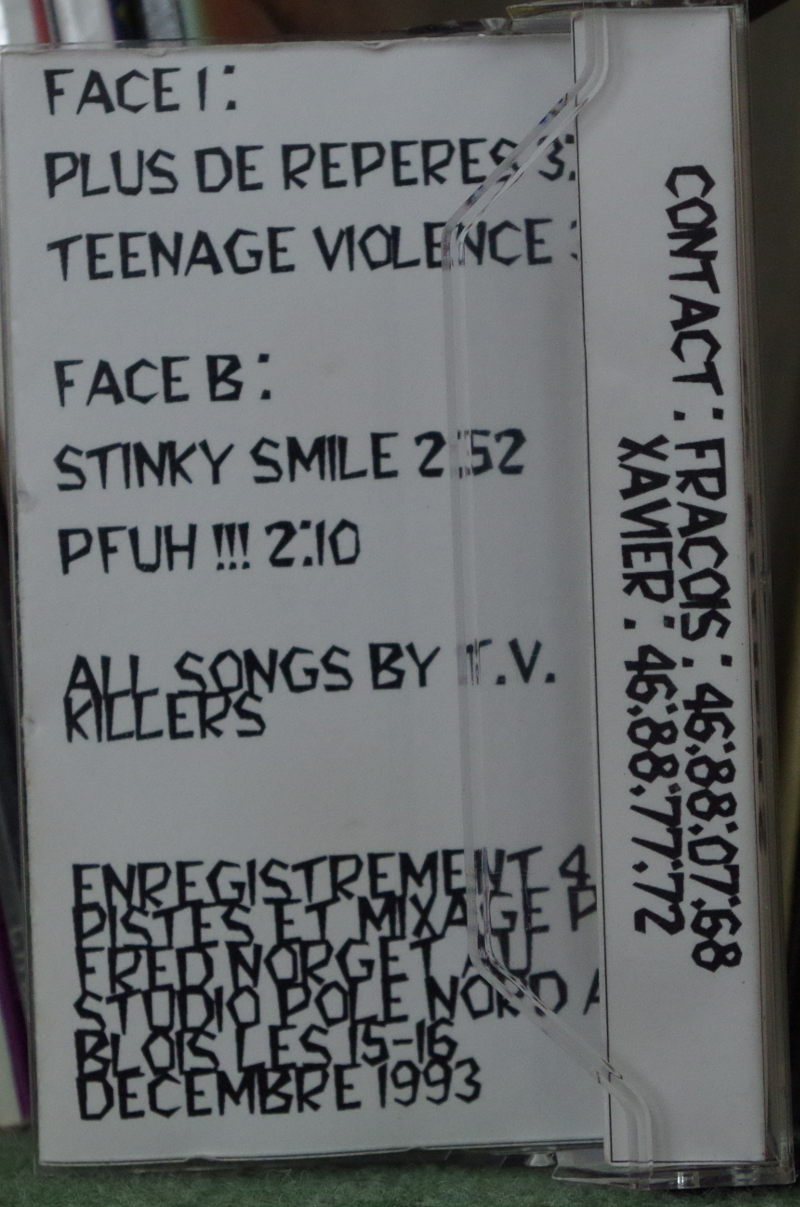 FACE 1 :
PLUS DE REPERES 3:
TEENAGE VIOLENCE :
FACE B :
STINKY SMILE 2:52
PFUH !!! 2:10
ALL SONGS BY T.V.
KILLERS
ENREGISTREMENT 4
PISTES ET MIXAGE P
FRED NORGET AU
STUDIO POLE NORD A
BLOIS LES 15-16
DECEMBRE 1993
CONTACT : FRACOIS : 46.88.07.68
XAVIER : 46.88.77.72